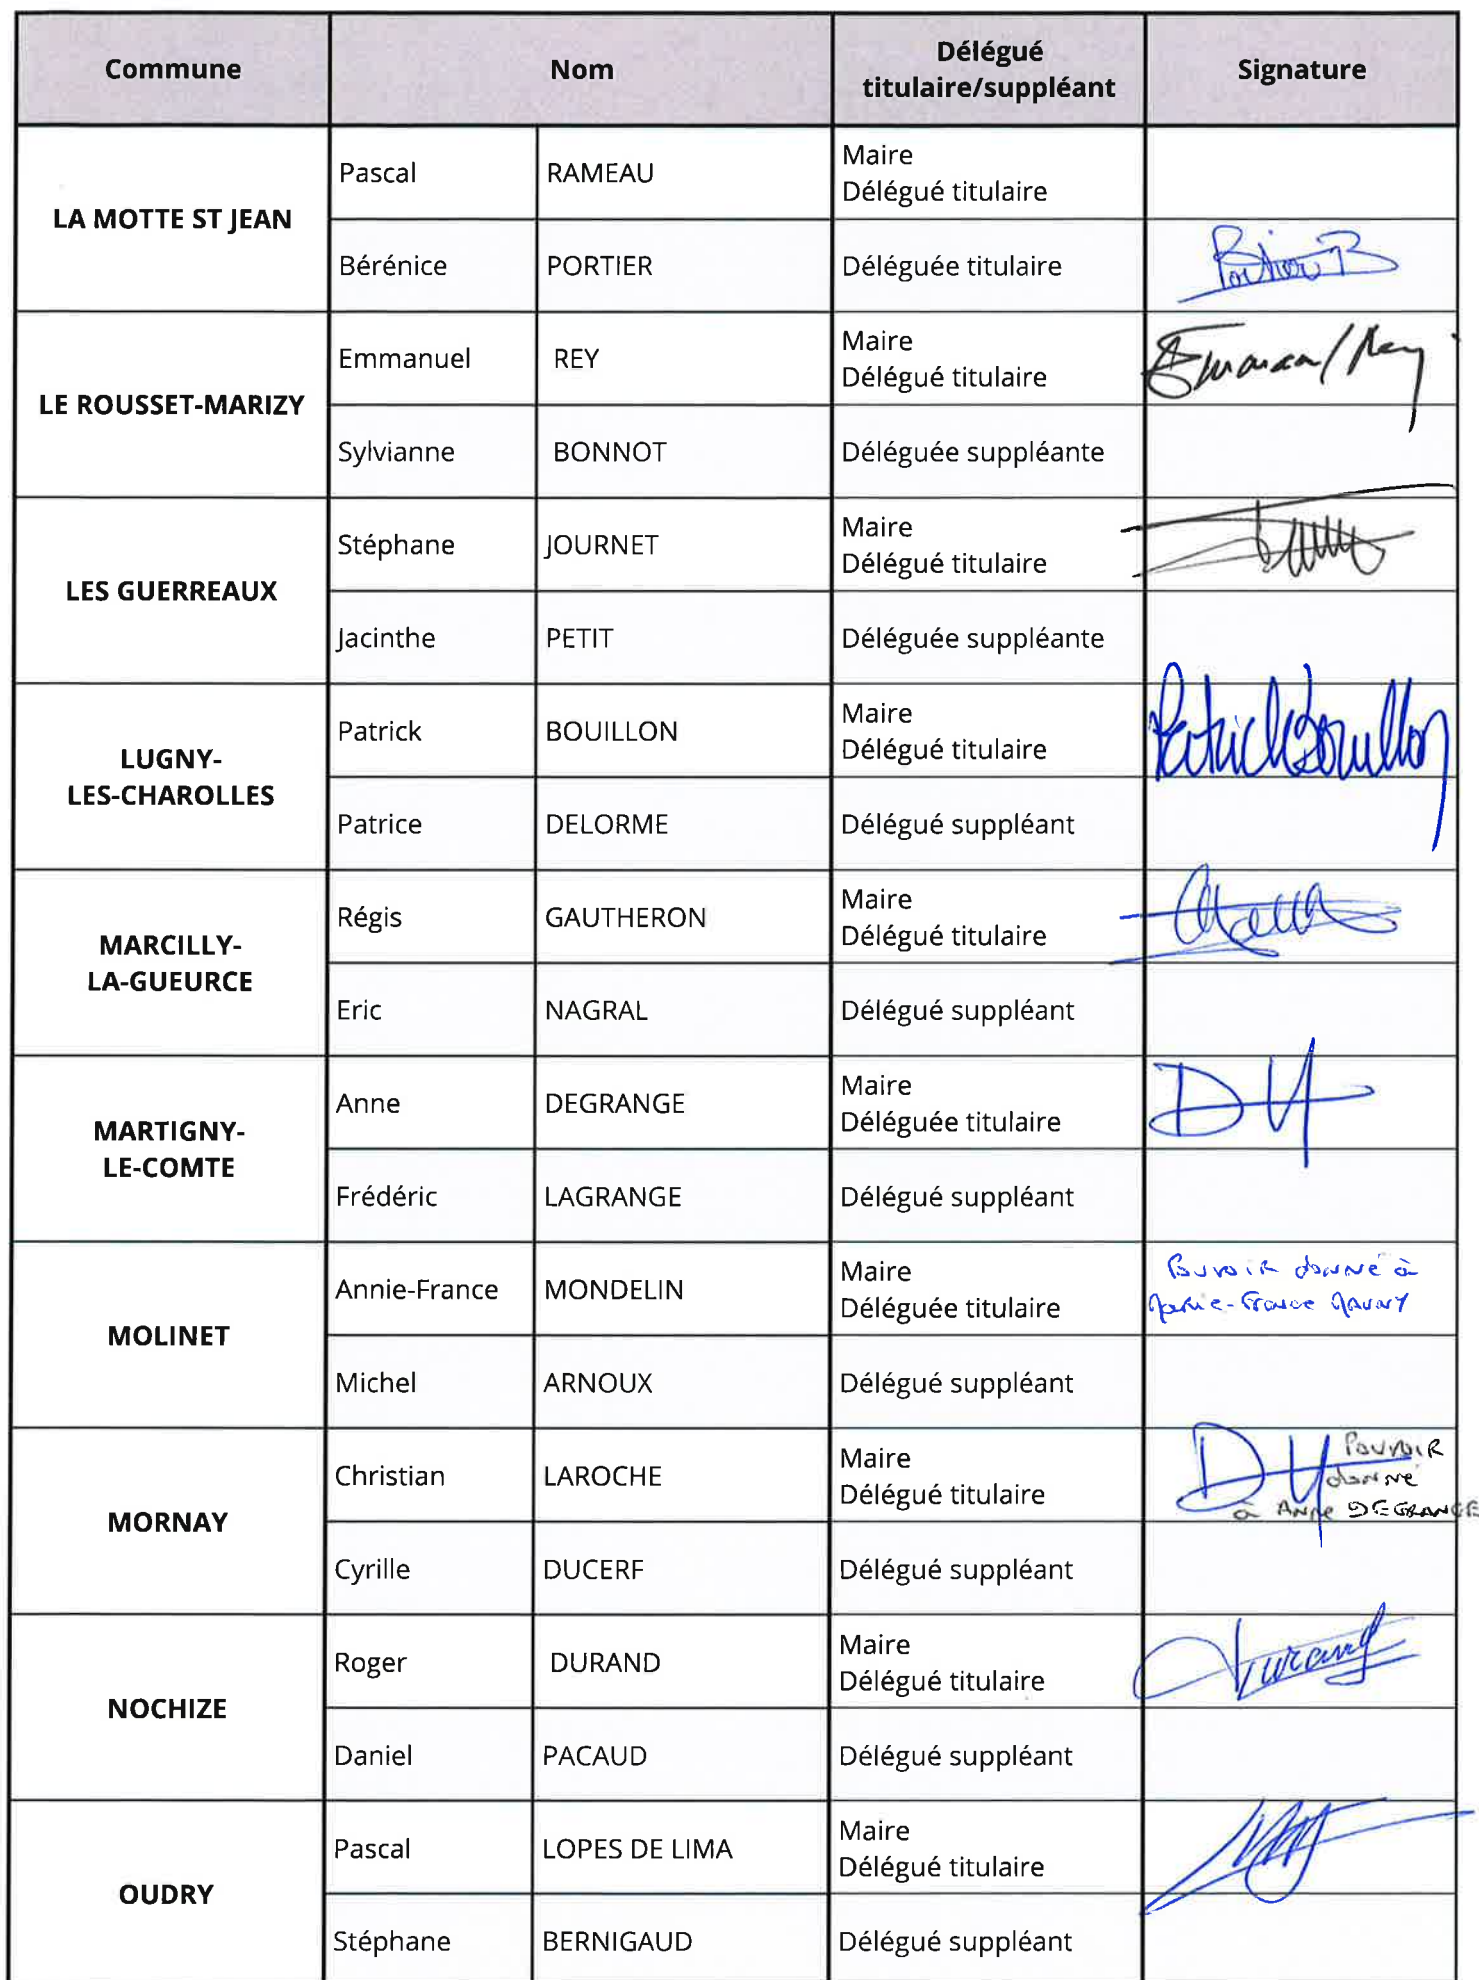 Commune Nom Délégué titulaire/suppléant Signature
LA MOTTE ST JEAN
Pascal RAMEAU Maire
Délégué titulaire
Bérénice PORTIER Déléguée titulaire Portier B
LE ROUSSET-MARIZY
Emmanuel REY Maire
Délégué titulaire Emmanuel Rey
Sylvianne BONNOT Déléguée suppléante
LES GUERREAUX
Stéphane JOURNET Maire
Délégué titulaire
Jacinthe PETIT Déléguée suppléante
LUGNY-
LES-CHAROLLES
Patrick BOUILLON Maire
Délégué titulaire Patrick Bouillon
Patrice DELORME Délégué suppléant
MARCILLY-
LA-GUEURCE
Régis GAUTHERON Maire
Délégué titulaire
Eric NAGRAL Délégué suppléant
MARTIGNY-
LE-COMTE
Anne DEGRANGE Maire
Déléguée titulaire
Frédéric LAGRANGE Délégué suppléant
MOLINET
Annie-France MONDELIN Maire
Déléguée titulaire
Pouvoir donné à
Marie-France
Michel ARNOUX Délégué suppléant
MORNAY
Christian LAROCHE Maire
Délégué titulaire
Pouvoir
donné
à Anne DEGRANGE
Cyrille DUCERF Délégué suppléant
NOCHIZE
Roger DURAND Maire
Délégué titulaire Durand
Daniel PACAUD Délégué suppléant
OUDRY
Pascal LOPES DE LIMA Maire
Délégué titulaire
Stéphane BERNIGAUD Délégué suppléant